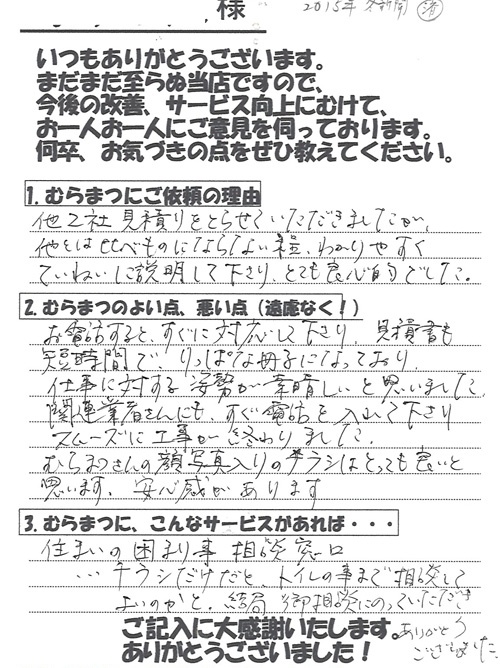 様 2015年 冬新聞 済
いつもありがとうございます。
まだまだ至らぬ当店ですので、
今後の改善、サービス向上にむけて、
お一人お一人にご意見を伺っております。
何卒、お気づきの点をぜひ教えてください。
1. むらまつにご依頼の理由
他2社 見積りをとらせていただきましたが、
他とは比べものにならない程、わかりやすく
ていねいに説明して下さり、とても良心的でした。
2. むらまつのよい点、悪い点（遠慮なく！）
お電話すると、すぐに対応して下さり、見積書も
短時間で、りっぱな冊子になっており、
仕事に対する姿勢が素晴しいと思いました。
関連業者さんにも、すぐ電話を入れて下さり
スムーズに工事が終わりました。
むらまつさんの顔写真入りのチラシはとっても良いと
思います。安心感があります
3. むらまつに、こんなサービスがあれば・・・
住まいの困まり事 相談窓口
… チラシだけだと、トイレの事まで相談して
よいのかと。結局 御相談にのっていただき
ありがとうございました。
ご記入に大感謝いたします。
ありがとうございました！